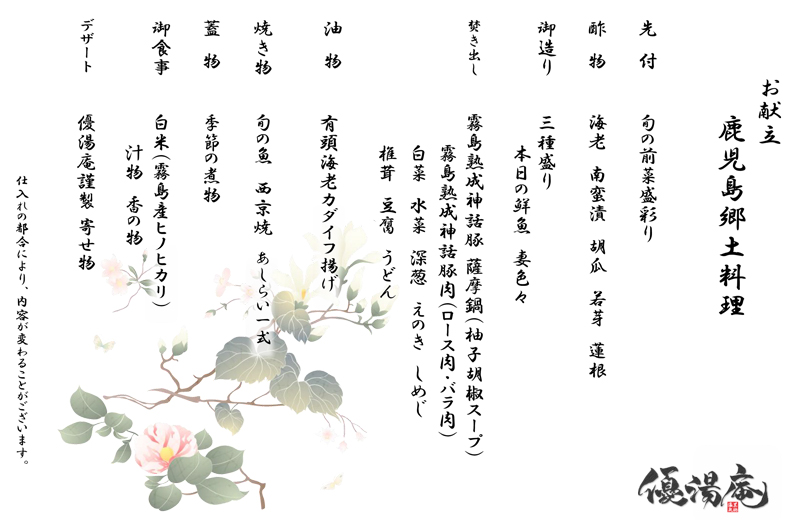 お献立
鹿児島郷土料理
先付　旬の前菜盛彩り
酢物　海老　南蛮漬　胡瓜　若芽　蓮根
御造り　三種盛り
本日の鮮魚　妻色々
焚き出し　霧島熟成神話豚 薩摩鍋(柚子胡椒スープ)
霧島熟成神話豚肉(ロース肉・バラ肉)
白菜　水菜　深葱　えのき　しめじ
椎茸　豆腐　うどん
油物　有頭海老カダイフ揚げ
焼き物　旬の魚　西京焼　あしらい一式
蓋物　季節の煮物
御食事　白米(霧島産ヒノヒカリ)
汁物　香の物
デザート　優湯庵謹製 寄せ物
仕入れの都合により、内容が変わることがございます。
優湯庵